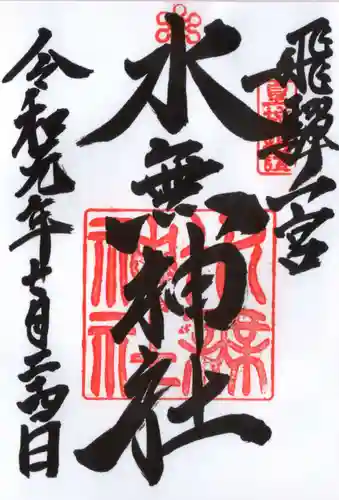 飛騨一宮
水無神社
令和元年七月二四日
水無神社